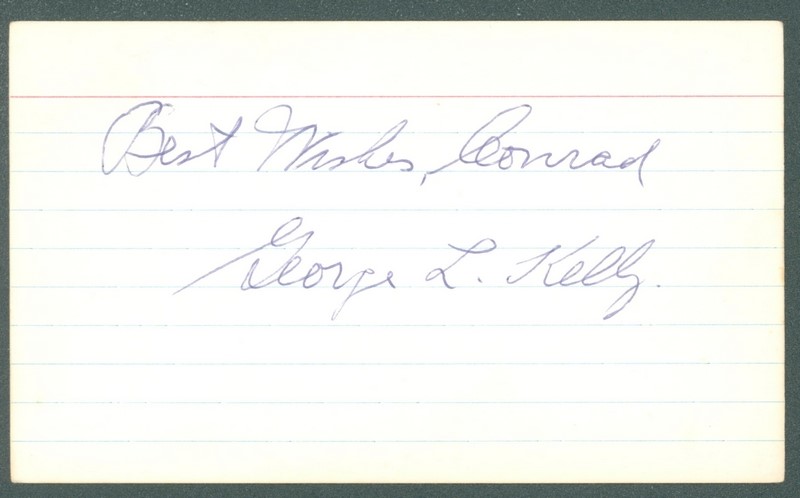 Best Wishes, Conrad
George L. Kelly.